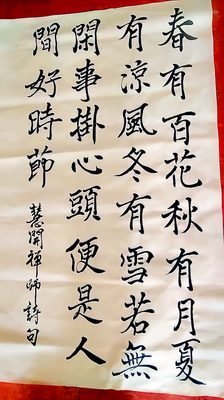 春有百花秋有月夏
有涼風冬有雪若無
閑事掛心頭便是人
間好時節
慧開禪師詩句